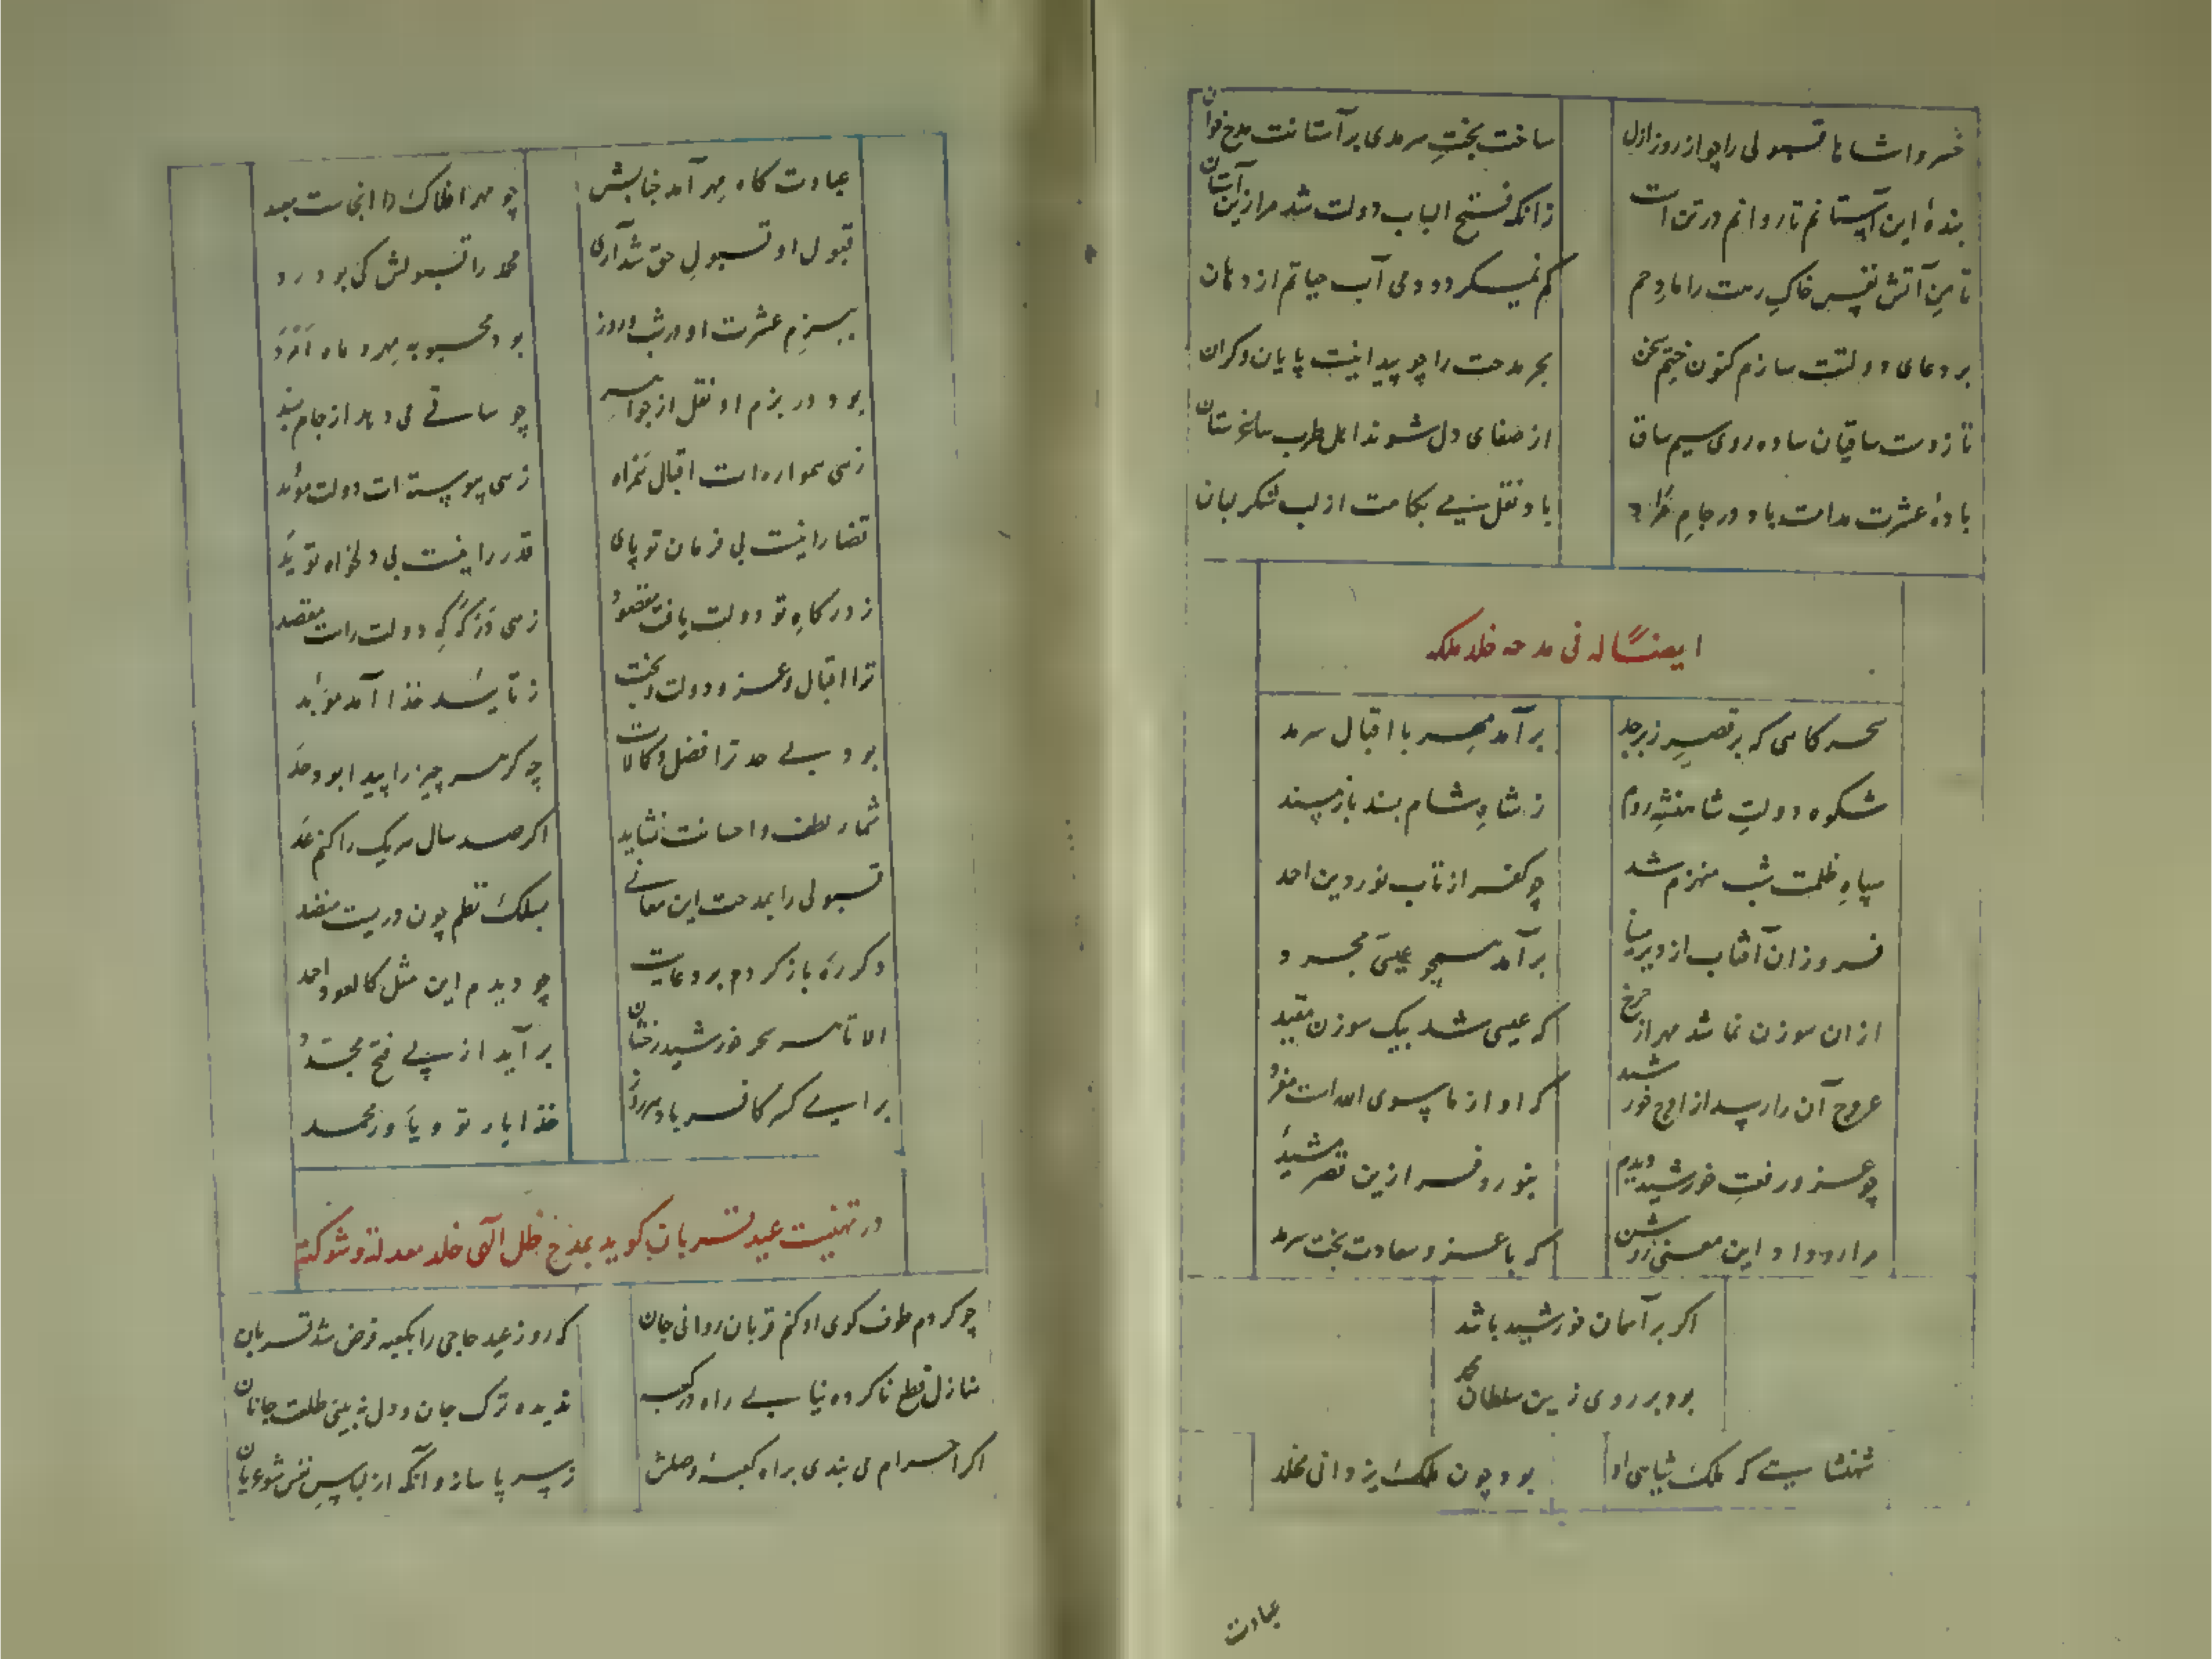 خسروا شاها قبولی را چو از روز ازل
ساخت بخت سرمدی بر آستانت مدح خوان
بندهٔ این آستانم تا روانم در تن است
زانکه فتح الباب دولت شد مرا زین آستان
تا من آتش نفس خاک رهت را مادحم
کم نمیکردد دمی آب حیاتم از دهان
بر دعای دولتت سازم کنون ختم سخن
بحر مدحت را چو پیدا نیست پایان و کران
تا ز دست ساقیان ساده روی سیم ساق
از صفای دل شوند اهل طرب ساغرستان
بادهٔ عشرت مدامت باد در جام مراد
باد نقل بکامت از لب شکر لبان
ایضًا له فی مدحه خلد ملکه
سحرکاهی که بر قصر زبرجد
برآمد مهر با اقبال سرمد
شکوه دولت شاهنشه روم
ز شاه شام بستد باز مسند
سپاه ظلمت شب منهزم شد
چو کفر از تاب نور دین احمد
فروزان آفتاب از دیر مینا
برآمد همچو عیسی مجرد
ازان سوزن نما شد مهر از چرخ
که عیسی شد بیک سوزن مقید
عروج آن را رسد از اوج خورشید
که او از ما سوی الله است مفرد
چو عز و رفعت خورشید دیدم
بنور و فر ازین قصر مشید
مرا رو داد این معنی روشن
که با عز و سعادت بخت سرمد
اکر بر آسمان خورشید باشد
بود بر روی زمین سلطان محمد
شهنشاهیست که ملک شاهی او
بود چون ملک یزدانی مخلد
عبادت
عبادت کاه مهر آمد جنابش
چو مهر افلاک را انجاست معبد
قبول او قبول حق شد آری
محمد را قبولش کی بود رد
ببزم عشرت او در شب و روز
بود محبوبه مهر و ماه امرد
بود در بزم او نقل از جواهر
چو ساقی می دهد از جام
زهی همواره ات اقبال همراه
زهی پیوسته ات دولت مؤید
قضا را نیست بی فرمان تو پای
قدر را نیست بی دلخواه تو ید
ز درکاه تو دولت یافت مقصود
زهی درکه که دولت راست مقصد
ترا اقبال و عز و دولت و بخت
ز تایید خدا آمد مؤبد
بود بی حد ترا فضل و کمالات
چه کر هر چیز را پیدا بود حد
شمار لطف و احسانت نشاید
اکر صد سال هر یک را کنم عد
قبولی را بمدحت این معانی
بسلک نظم چون دریست منضد
دکر ره باز کردم بر دعایت
چو دیدم این مثل کالعود احمد
الا تا هر سحر خورشید رخشان
برآید از پی فتح مجدد
برای کسر کافر باد هر روز
خدا یار تو و یاور محمد
در تهنیت عید قربان کوید بمدح ظل آلهی خلد معدلته و شوکته
چو کردم طوف کوی او کنم قربان روانی جان
که روز عید حاجی را بکعبه فرض شد قربان
منازل قطع ناکرده نیابی راه در کعبه
ندیده ترک جان و دل نه بینی طلعت جانان
اکر احرام می بندی براه کعبهٔ وصلش
ز سر پا ساز و آنکه از لباس نفس شو عریان